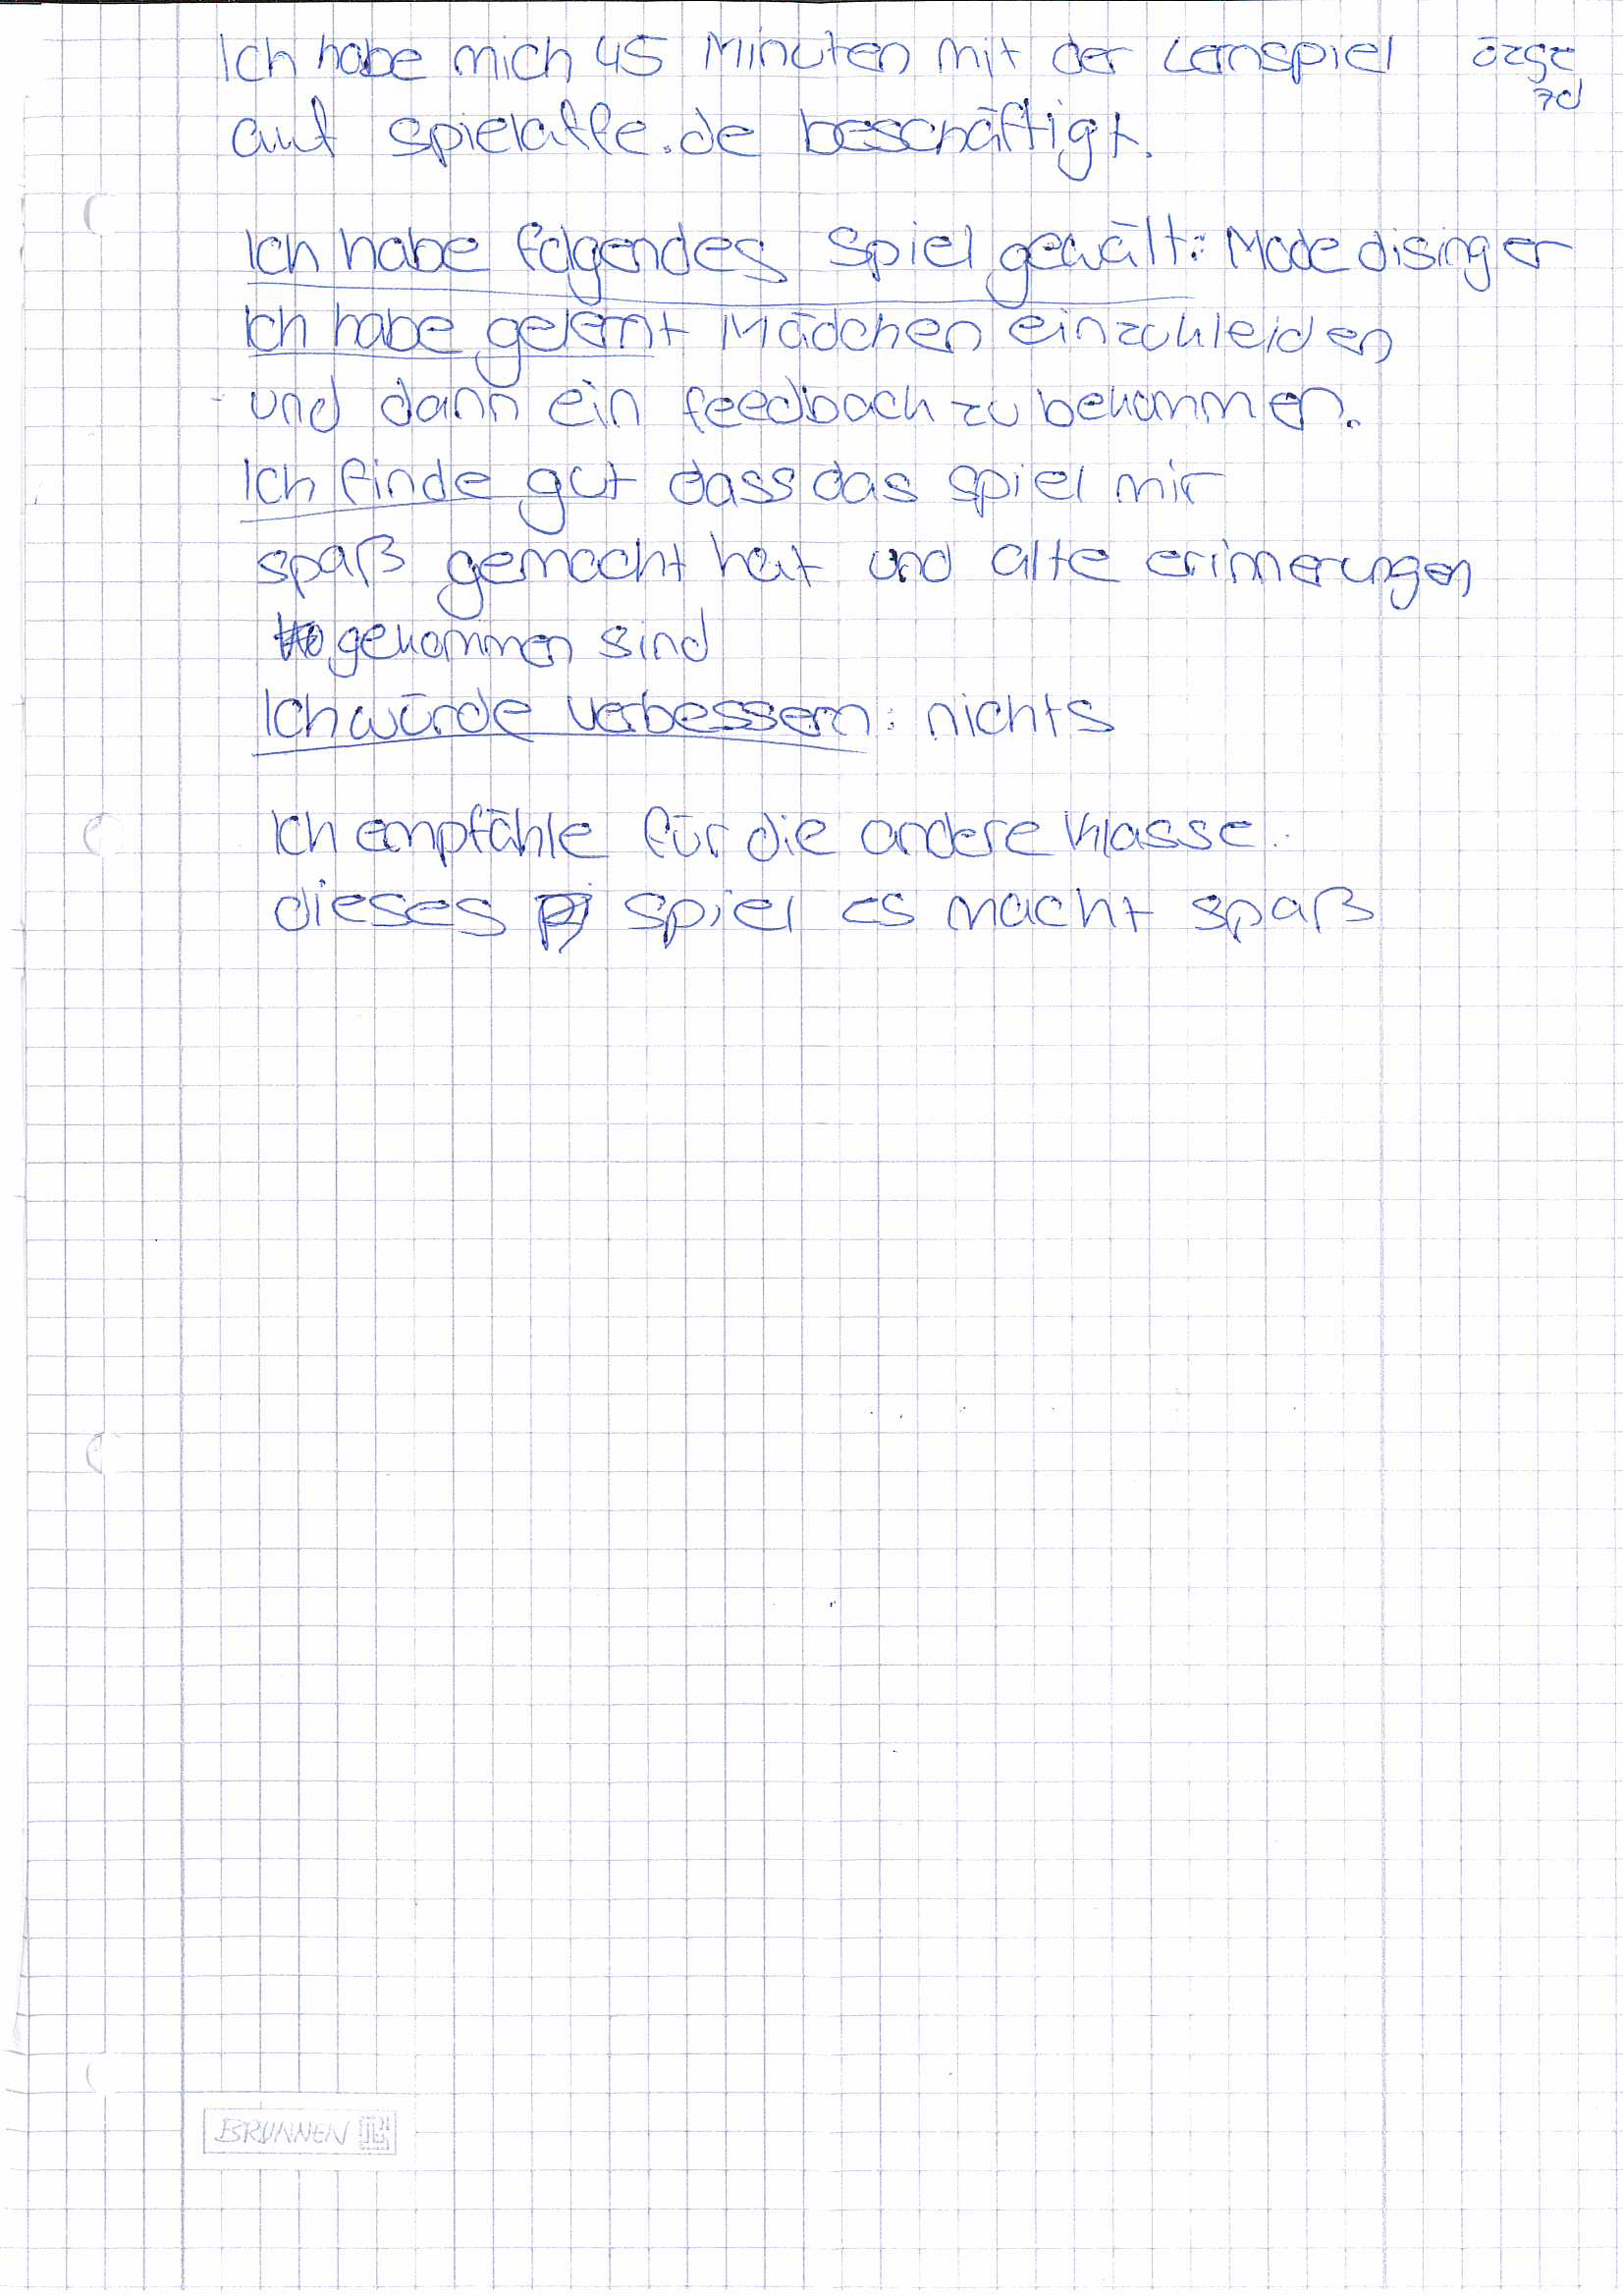 Ich habe mich 45 Minuten mit der Lernspiel
özge
7d
auf spielaffe.de beschäftigt.
Ich habe folgendes Spiel gewält: Mode disinger
Ich habe gelernt Mädchen einzukleiden
und dann ein feedback zu bekommen.
Ich finde gut dass das spiel mir
spaß gemacht hat und alte erinnerungen
gekommen sind
Ich würde verbessern: nichts
Ich empfähle für die andere Klasse.
dieses spiel es macht spaß
BRUNNEN